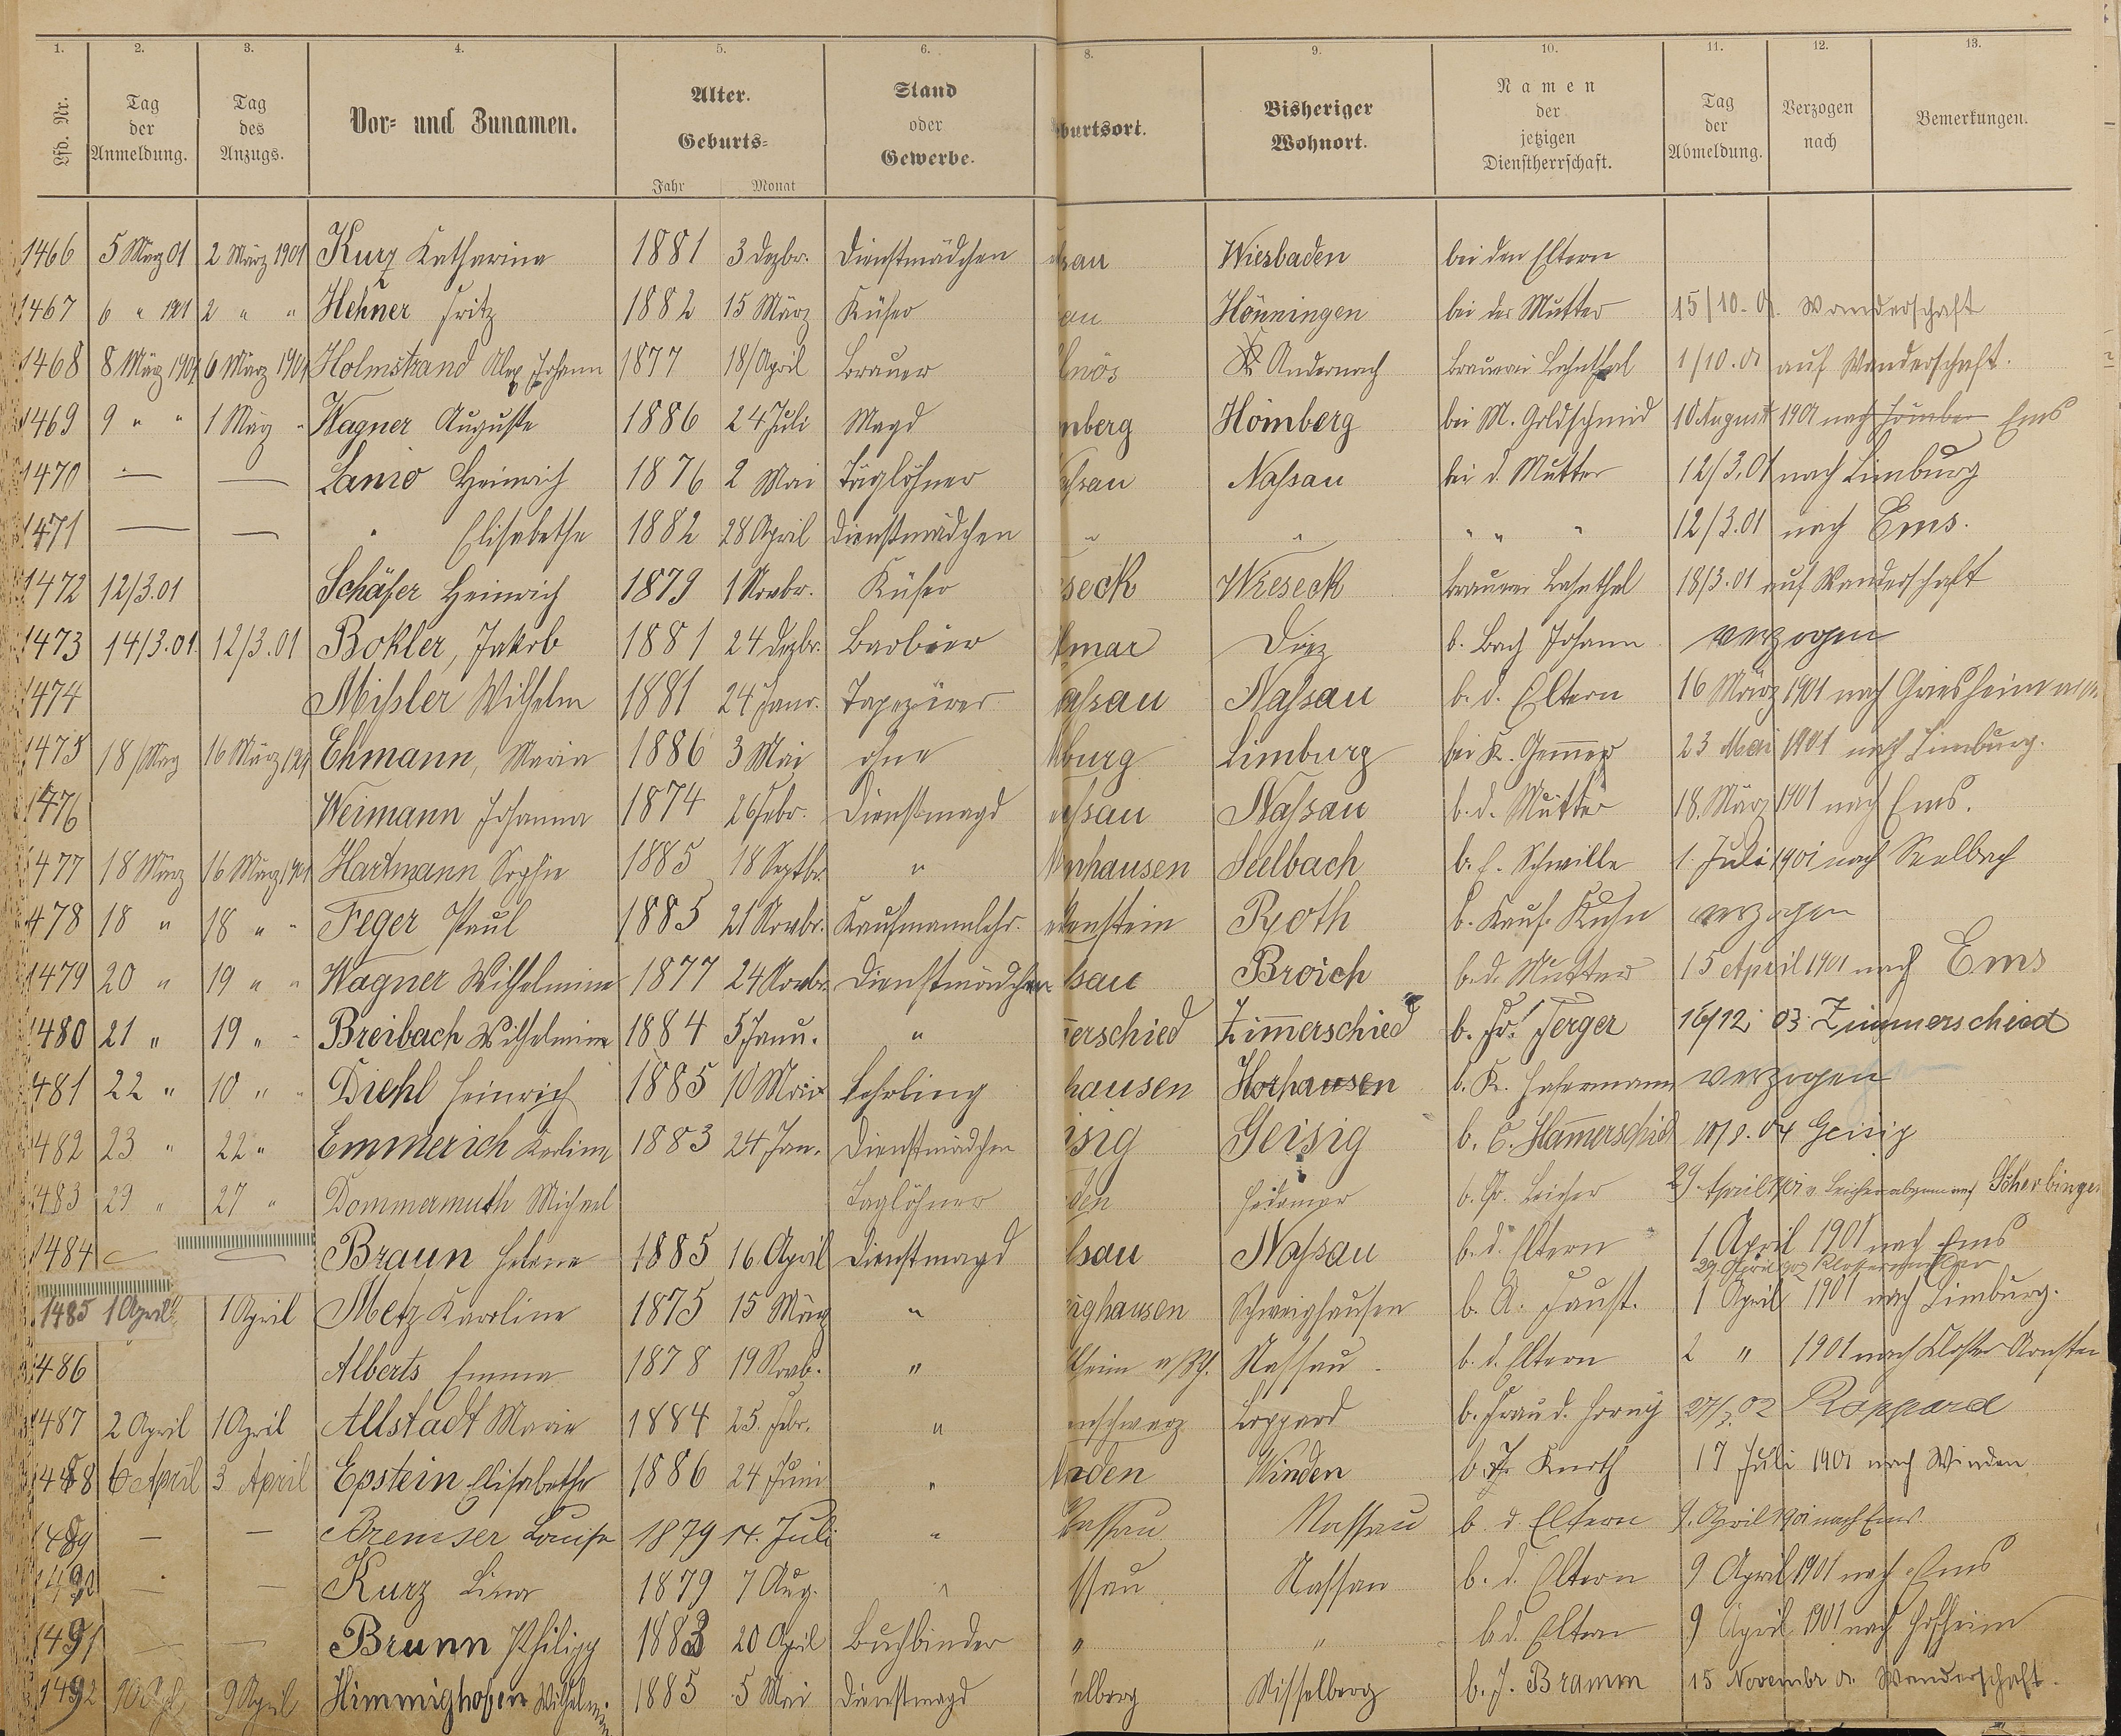 1. 2. 3. 4. 5. 6. 8. 9. 10. 11. 12. 13.
Lfd. Nr. Tag der Anmeldung. Tag des Anzugs. Vor- und Zunamen. Alter. Geburts- Jahr Monat Stand oder Gewerbe. burtsort. Bisheriger Wohnort. Namen der jetzigen Dienstherrschaft. Tag der Abmeldung. Verzogen nach Bemerkungen.
1466 5 März 01 2 März 1901 Kurz Katharina 1881 3 Dezbr. Dienstmädchen sau Wiesbaden bei den Eltern
1467 6 " 1901 2 " " Hehner Fritz 1882 15 März Küfer au Hönningen bei der Mutter 15/10. 01. Wanderschaft
1468 8 März 1901 6 März 1901 Holmstrand Alex Johann 1877 18/April Brauer nös Andernach Brauerei Lahnthal 1/10. 01 auf Wanderschaft.
1469 9 " " 1 März " Wagner Auguste 1886 24 Juli Magd mberg Hömberg bei M. Goldschmid 10 August 1901 nach Hömber Ems
1470 — — Lanio Heinrich 1876 2 Mai Taglöhner ssau Nassau bei d. Mutter 12/3.01 nach Limburg
1471 — — " Elisabethe 1882 28 April Dienstmädchen " " " " " 12/3.01 nach Ems.
1472 12/3.01 Schäfer Heinrich 1879 1 Novbr. Küfer seck Wieseck Brauerei Lahnthal 18/3.01 auf Wanderschaft
1473 14/3.01. 12/3.01 Bokler, Jakob 1881 24 Dezbr. Barbier mar Diez b. Bach Johann verzogen
1474 Missler Wilhelm 1881 24 Janr. Tapezirer assau Nassau b. d. Eltern 16 März 1901 nach Griesheim
1475 18/März 16 März 1901 Ehmann, Maria 1886 3 Mai ohne burg Limburg bei K. 23 Mai 1901 nach Limburg.
1476 Weimann Johanna 1874 26 Febr. Dienstmagd ssau Nassau b. d. Mutter 18. März 1901 nach Ems.
1477 18 März 16 März 1901 Hartmann Sophie 1885 18 Septbr. " nhausen Seelbach b. Schwille 1. Juli 1901 nach Seelbach
1478 18 " 18 " " Feger Paul 1885 21 Novbr. Kaufmannlehr. enstein Roth b. Kauf. Kuhn verzogen
1479 20 " 19 " " Wagner Wilhelmine 1877 24 Novbr. Dienstmädchen sau Broich b. d. Mutter 15 April 1901 nach Ems
1480 21 " 19 " " Breibach Wilhelmine 1884 5 Janu. " erschied Zimmerschied b. Fr. Ferger 16/12. 03. Zimmerschied
1481 22 " 10 " " Diehl Heinrich 1885 10 Mai Lehrling hausen Horhausen b. K. Habermann verzogen
1482 23 " 22 " Emmerich Karline 1883 24 Jan. Dienstmädchen isig Geisig b. C. Hammerschid 04 Geisig
1483 29 " 27 " Dommermuth Michael Taglöhner den Hadamar b. Leicher 29. April 1901
1484 — — Braun Helene 1885 16 April Dienstmagd sau Nassau b. d. Eltern 1 April 1901 nach Ems
29. April
1485 1 April 1 April Metz Karoline 1875 15 März " ighausen Schweighausen b. A. Faust. 1 April 1901 nach Limburg.
1486 Alberts Emma 1878 19 Novb. " heim a/Rh. Nassau b. d. Eltern 2 " 1901 nach Kloster Arnstei
1487 2 April 1 April Allstadt Marie 1884 25. Febr. " nschwarz Boppard b. Frau d. Horny 27/3. 02 Boppard
1488 6 April 3 April Epstein Elisabethe 1886 24 Juni " nden Winden b. Knoth 17 Juli 1901 nach Winden
1489 — — Bremser Louise 1879 14. Juli " Nassau Nassau b d Eltern 9. April 1901 nach Ems.
1490 — — Kurz Lina 1879 7 Aug. " ssau Nassau b. d. Eltern 9 April 1901 nach Ems
1491 — — Brunn Philipp 1883 20 April Buchbinder " " b d. Eltern 9 April 1901 nach Hofheim
1492 10 Apl 9 April Himmighofen Wilhelmin 1885 5 Mai Dienstmagd elberg Misselberg b. J. Bramm 15 Novembr 01. Wanderschaft.